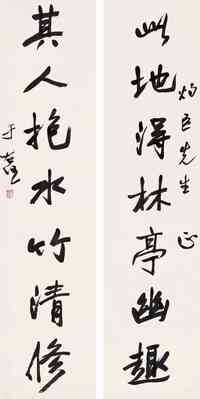 灼臣先生 正
此地得林亭幽趣
其人抱水竹清修
于右任